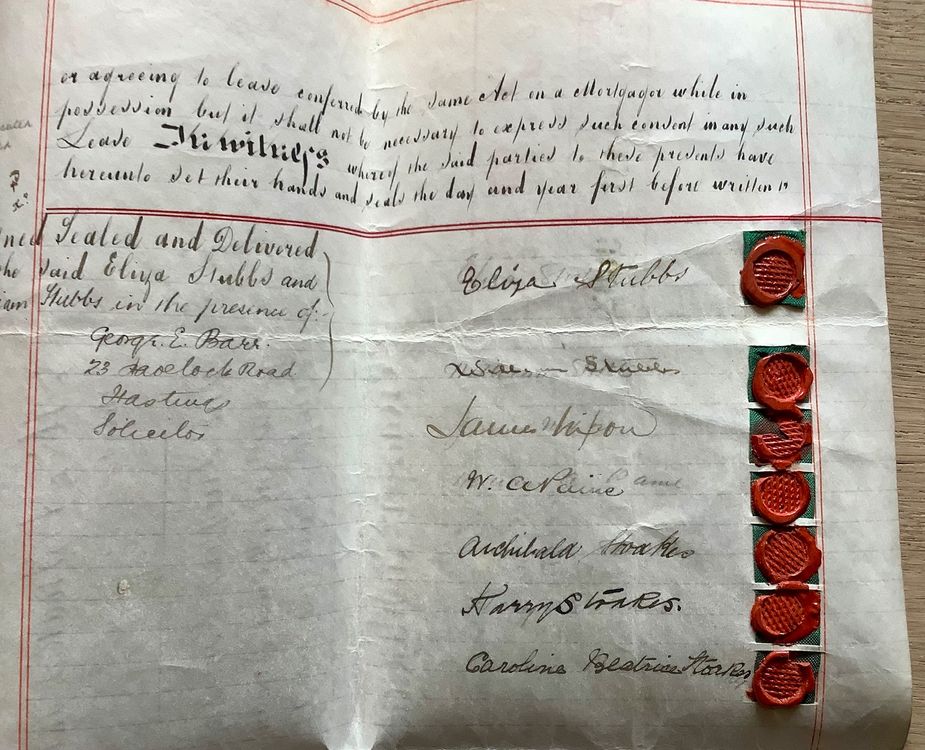 or agreeing to lease conferred by the same Act on a Mortgagor while in
possession but it shall not be necessary to express such consent in any such
Lease In witness whereof the said parties to these presents have
hereunto set their hands and seals the day and year first before written
ned Sealed and Delivered
he said Eliza Stubbs and
iam Stubbs in the presence of:-
George E. Barr.
23 Havelock Road
Hastings
Solicitor
Eliza Stubbs
Stubbs
James Nixon
W. A Paine
Archibald Stoakes
Harry Stoakes.
Caroline Beatrice Stoakes